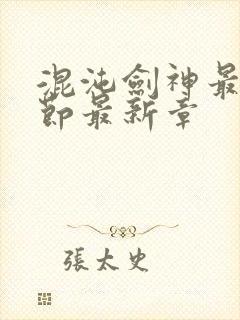 混沌劍神最
節最新章
張太史